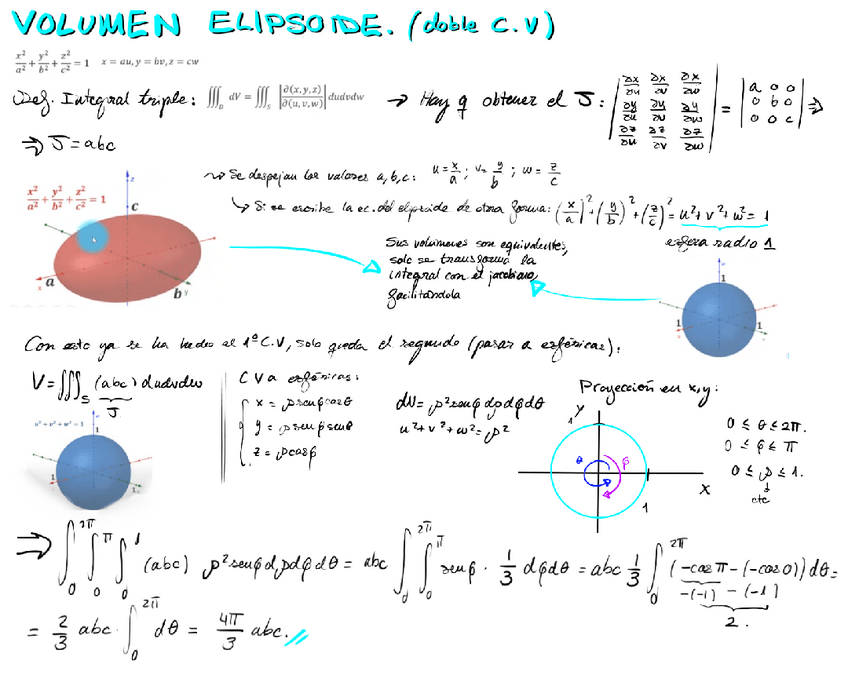 VOLUMEN ELIPSOIDE. (doble C.V)
x²/a² + y²/b² + z²/c² = 1   x = au, y = bv, z = cw
Def. Integral triple: ∭_D dV = ∭_S |∂(x,y,z)/∂(u,v,w)| dudvdw → Hay q obtener el J: |∂x/∂u ∂x/∂v ∂x/∂w; ∂y/∂u ∂y/∂v ∂y/∂w; ∂z/∂u ∂z/∂v ∂z/∂w| = |a 0 0; 0 b 0; 0 0 c| ⇒
⇒ J = abc
x²/a² + y²/b² + z²/c² = 1
z
c
a
x
b
y
↝ Se despejan los valores a,b,c: u = x/a ; v = y/b ; w = z/c
↳ Si se escribe la ec. del elipsoide de otra forma: (x/a)² + (y/b)² + (z/c)² = u² + v² + w² = 1
esfera radio 1
Sus volúmenes son equivalentes,
solo se transforma la
integral con el jacobiano,
facilitándola
1
1
1
Con esto ya se ha hecho el 1º C.V, solo queda el segundo (pasar a esféricas):
V = ∭_S (abc) dudvdw
J
u² + v² + w² = 1
1
1
1
C V a esféricas:
x = ρ senφ cosθ
y = ρ senφ senθ
z = ρ cosφ
dV = ρ² senφ dρ dφ dθ
u² + v² + w² = ρ²
Proyección en x,y:
Y
θ
φ
X
1
0 ≤ θ ≤ 2π.
0 ≤ φ ≤ π
0 ≤ ρ ≤ 1.
↓
cte
⇒ ∫₀^2π ∫₀^π ∫₀^1 (abc) ρ² senφ dρ dφ dθ = abc ∫₀^2π ∫₀^π senφ · 1/3 dφ dθ = abc 1/3 ∫₀^2π (-cos π - (-cos 0)) dθ =
-(-1) - (-1)
2.
= 2/3 abc · ∫₀^2π dθ = 4π/3 abc.